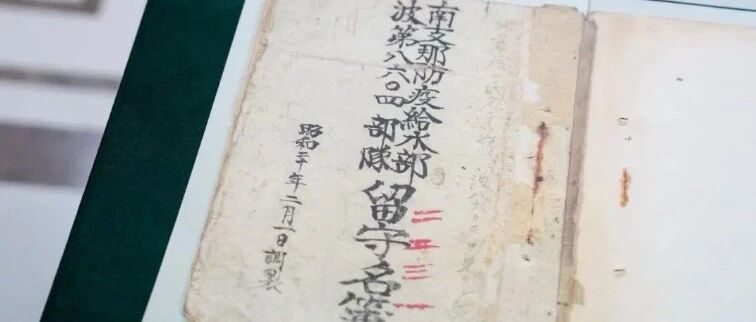 南支那防疫給水部
波第八六〇四部隊
留守名簿
昭和二十年二月一日調製